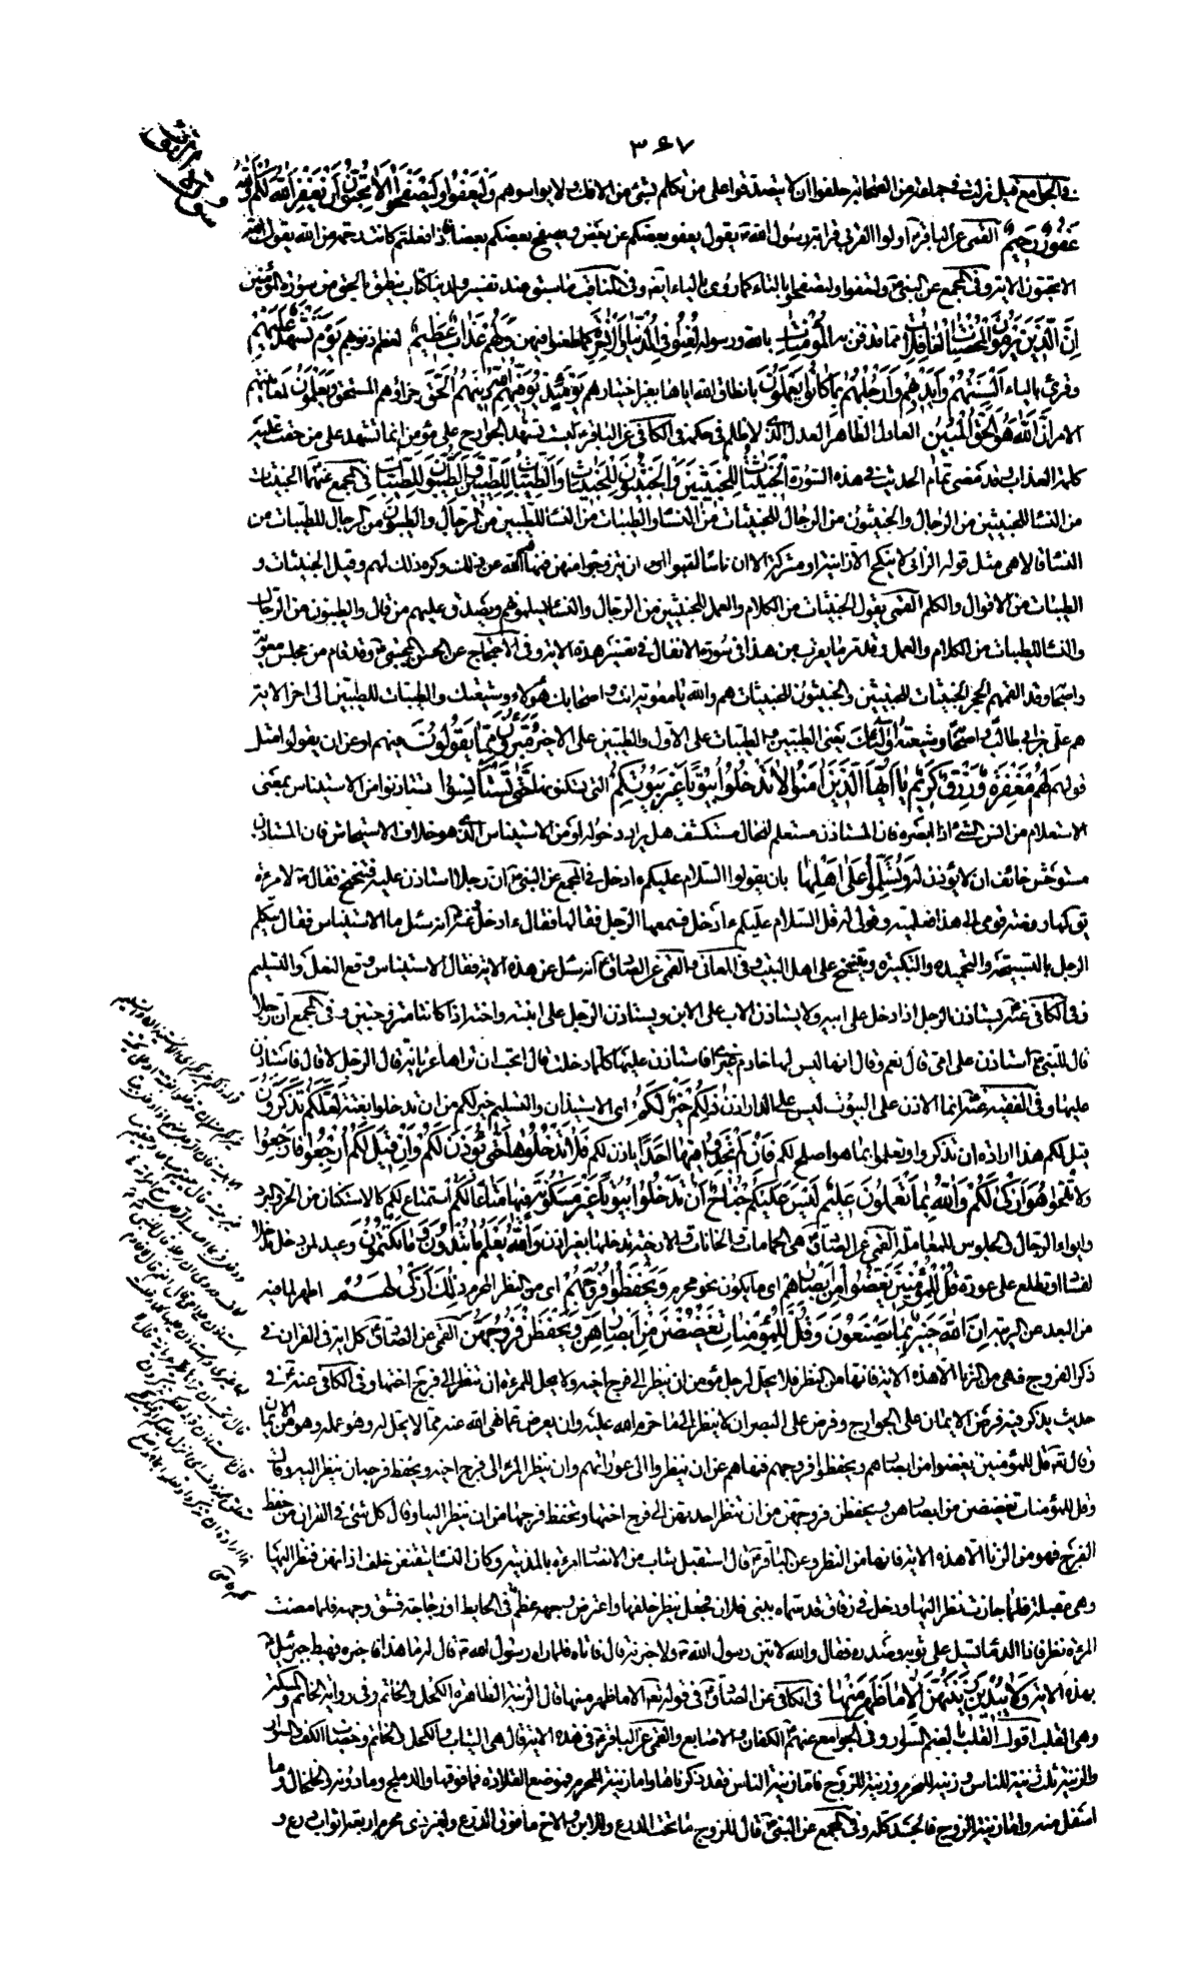 ٣٦٧
سورة النور
في الجوامع قيل نزلت في جماعة من الصحابة حلفوا ان لا يتصدقوا على من تكلم بشئ من الافك ولا يواسوهم وَلْيَعْفُوا وَلْيَصْفَحُوا أَلَا تُحِبُّونَ أَنْ يَغْفِرَ اللَّهُ لَكُمْ وَاللَّهُ
غَفُورٌ رَحِيمٌ القمي عن الباقر اولوا القربى قرابة رسول الله يقول يعفو بعضكم عن بعض ويصفح بعضكم بعضا فاذا فعلتم كانت رحمة من الله يقول الله
الا تحبون الاية وفي المجمع عن النبي ولتعفوا ولتصفحوا بالتاء كما روى بالياء ايضا وفي الكافي ما سبق عند تفسير ولدينا كتاب ينطق بالحق من سورة المؤمنين
إِنَّ الَّذِينَ يَرْمُونَ الْمُحْصَنَاتِ الْغَافِلَاتِ مما قذفن به الْمُؤْمِنَاتِ بالله ورسوله لُعِنُوا فِي الدُّنْيَا وَالْآخِرَةِ كما طعنوا فيهن وَلَهُمْ عَذَابٌ عَظِيمٌ لعظم ذنوبهم يَوْمَ تَشْهَدُ عَلَيْهِمْ
وقرئ بالياء أَلْسِنَتُهُمْ وَأَيْدِيهِمْ وَأَرْجُلُهُمْ بِمَا كَانُوا يَعْمَلُونَ بانطاق الله اياها بغير اختيارهم يَوْمَئِذٍ يُوَفِّيهِمُ اللَّهُ دِينَهُمُ الْحَقَّ جزاؤهم المستحق وَيَعْلَمُونَ لمعاينتهم
الامر أَنَّ اللَّهَ هُوَ الْحَقُّ الْمُبِينُ العادل الظاهر العدل الذي لا ظلم في حكمه في الكافي عن الباقر ليست تشهد الجوارح على مؤمن انما تشهد على من حقت عليه
كلمة العذاب وقد مضى تمام الحديث في هذه السورة الْخَبِيثَاتُ لِلْخَبِيثِينَ وَالْخَبِيثُونَ لِلْخَبِيثَاتِ وَالطَّيِّبَاتُ لِلطَّيِّبِينَ وَالطَّيِّبُونَ لِلطَّيِّبَاتِ في المجمع عنهما الخبيثات
من النساء للخبيثين من الرجال والخبيثون من الرجال للخبيثات من النساء والطيبات من النساء للطيبين من الرجال والطيبون من الرجال للطيبات من
النساء قالا هي مثل قوله الزاني لا ينكح الا زانية او مشركة الا ان ناسا هموا ان يتزوجوا منهن فنهاهم الله عن ذلك وكره ذلك لهم وقيل الخبيثات و
الطيبات من الاقوال والكلم القمي يقول الخبيثات من الكلام والعمل للخبيثين من الرجال والنساء يسلمونهم ويصدق عليهم من قال والطيبون من الرجال
والنساء للطيبات من الكلام والعمل وقد مر ما يقرب من هذا في سورة الانفال في تفسير هذه الاية وفي الاحتجاج عن الحسن المجتبى وقد قام من مجلس معوية
واصحابه وقد القمهم الحجر الخبيثات للخبيثين والخبيثون للخبيثات هم والله يا معوية انت واصحابك هؤلاء وشيعتك والطيبات للطيبين الى اخر الاية
هم علي بن ابي طالب واصحابه وشيعته أُولَئِكَ يعني الطيبين والطيبات على الاول والطيبين على الاخر مُبَرَّءُونَ مِمَّا يَقُولُونَ فيهم او عن ان يقولوا مثل
قولهم لَهُمْ مَغْفِرَةٌ وَرِزْقٌ كَرِيمٌ يَا أَيُّهَا الَّذِينَ آمَنُوا لَا تَدْخُلُوا بُيُوتًا غَيْرَ بُيُوتِكُمْ التي تسكنونها حَتَّى تَسْتَأْنِسُوا تستاذنوا من الاستيناس بمعنى
الاستعلام من انس الشئ اذا ابصره فان المستاذن مستعلم للحال مستكشف هل يراد دخوله او من الاستيناس الذي هو خلاف الاستيحاش فان المستاذن
مستوحش خائف ان لا يؤذن له وَتُسَلِّمُوا عَلَى أَهْلِهَا بان يقولوا السلام عليكم ءادخل في المجمع عن النبي ان رجلا استاذن عليه فتنحنح فقال لامرءة
يق لها روضة قومي الى هذا فعلميه وقولي له قل السلام عليكم ءادخل فسمعها الرجل فقالها فقال ادخل وعنه انه سئل ما الاستيناس فقال يتكلم
الرجل بالتسبيحة والتحميدة والتكبيرة ويتنحنح على اهل البيت وفي المعاني والقمي عن الصادق انه سئل عن هذه الاية فقال الاستيناس وقع النعل والتسليم
وفي الكافي عنه يستاذن الرجل اذا دخل على ابيه ولا يستاذن الاب على الابن ويستاذن الرجل على ابنته واخته اذا كانتا متزوجتين وفي المجمع ان رجلا
قال للنبي استاذن على امي قال نعم وقال انها ليس لها خادم غيري افاستاذن عليها كلما دخلت قال اتحب ان تراها عريانة قال الرجل لا قال فاستاذن
عليها وفي الفقيه عنه انما الاذن على البيوت ليس على الدار اذن ذَلِكُمْ خَيْرٌ لَكُمْ اي الاستيذان والتسليم خير لكم من ان تدخلوا بغتة لَعَلَّكُمْ تَذَكَّرُونَ
قيل لكم هذا ارادة ان تذكروا وتعملوا بما هو اصلح لكم فَإِنْ لَمْ تَجِدُوا فِيهَا أَحَدًا ياذن لكم فَلَا تَدْخُلُوهَا حَتَّى يُؤْذَنَ لَكُمْ وَإِنْ قِيلَ لَكُمُ ارْجِعُوا فَارْجِعُوا
ولا تلحوا هُوَ أَزْكَى لَكُمْ وَاللَّهُ بِمَا تَعْمَلُونَ عَلِيمٌ لَيْسَ عَلَيْكُمْ جُنَاحٌ أَنْ تَدْخُلُوا بُيُوتًا غَيْرَ مَسْكُونَةٍ فِيهَا مَتَاعٌ لَكُمْ استمتاع لكم كالاستكنان من الحر والبرد
وايواء الرجال والجلوس للمعاملة القمي عن الصادق هي الحمامات والخانات والارحية تدخلها بغير اذن وَاللَّهُ يَعْلَمُ مَا تُبْدُونَ وَمَا تَكْتُمُونَ وعيد لمن دخل مدخلا
لفساد او تطلع على عورة قُلْ لِلْمُؤْمِنِينَ يَغُضُّوا مِنْ أَبْصَارِهِمْ اي ما يكون نحو محرم وَيَحْفَظُوا فُرُوجَهُمْ اي من النظر المحرم ذَلِكَ أَزْكَى لَهُمْ اطهر لما فيه
من البعد عن الريبة إِنَّ اللَّهَ خَبِيرٌ بِمَا يَصْنَعُونَ وَقُلْ لِلْمُؤْمِنَاتِ يَغْضُضْنَ مِنْ أَبْصَارِهِنَّ وَيَحْفَظْنَ فُرُوجَهُنَّ القمي عن الصادق كل اية في القران في
ذكر الفروج فهي من الزنا الا هذه الاية فانها من النظر فلا يحل لرجل مؤمن ان ينظر الى فرج اخيه ولا يحل للمرءة ان تنظر الى فرج اختها وفي الكافي عنه في
حديث يذكر فيه فرض الايمان على الجوارح وفرض على البصر ان لا ينظر الى ما حرم الله عليه وان يعرض عما نهى الله عنه مما لا يحل له وهو عمله وهو من الايمان
وقال تع قل للمؤمنين يغضوا من ابصارهم ويحفظوا فروجهم فنهاهم عن ان ينظروا الى عوراتهم وان ينظر المرء الى فرج اخيه ويحفظ فرجه ان ينظر اليه وقال
وقل للمؤمنات يغضضن من ابصارهن ويحفظن فروجهن من ان تنظر احديهن الى فرج اختها وتحفظ فرجها من ان ينظر اليها وقال كل شئ في القران من حفظ
الفرج فهو من الزنا الا هذه الاية فانها من النظر وعن الباقر قال استقبل شاب من الانصار امرءة بالمدينة وكان النساء يتقنعن خلف اذانهن فنظر اليها
وهي مقبلة فلما جازت نظر اليها ودخل في زقاق قد سماه ببني فلان فجعل ينظر خلفها واعترض وجهه عظم في الحايط او زجاجة فشق وجهه فلما مضت
المرءة نظر فاذا الدماء تسيل على ثوبه وصدره فقال والله لاتين رسول الله ولاخبرنه قال فاتاه فلما راه رسول الله قال له ما هذا فاخبره فهبط جبرئيل
بهذه الاية وَلَا يُبْدِينَ زِينَتَهُنَّ إِلَّا مَا ظَهَرَ مِنْهَا في الكافي عن الصادق في قوله تع الا ما ظهر منها قال الزينة الظاهرة الكحل والخاتم وفي رواية الخاتم والمسكة
وهي القلب اقول القلب بالضم السوار وفي الجوامع عنهم الكفان والاصابع والقمي عن الباقر في هذه الاية قال هي الثياب والكحل والخاتم وخضاب الكف والسوار
والزينة ثلث زينة للناس وزينة للمحرم وزينة للزوج فاما زينة الناس فقد ذكرناها واما زينة المحرم فموضع القلادة فما فوقها والدملج وما دونه والخلخال وما
اسفل منه واما زينة الزوج فالجسد كله وفي المجمع عن النبي قال للزوج ما تحت الدرع وللابن والاخ ما فوق الدرع ولغير ذي محرم اربعة اثواب درع و